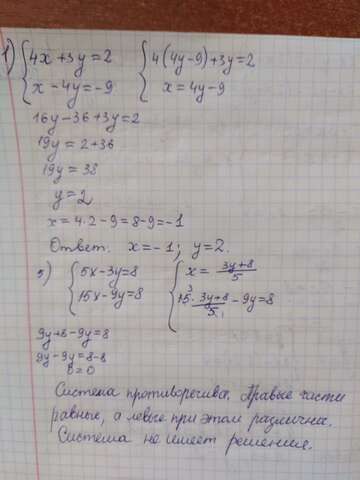 1) { 4x+3y=2 { 4(4y-9)+3y=2
x-4y=-9 x=4y-9
16y-36+3y=2
19y=2+36
19y=38
y=2
x=4·2-9=8-9=-1
Ответ: x=-1; y=2.
5) { 5x-3y=8 { x= 3y+8/5
15x-9y=8 15·3y+8/5-9y=8
9y+8-9y=8
9y-9y=8-8
0=0
Система противоречива. Правые части
равные, а левые при этом различны.
Система не имеет решения.